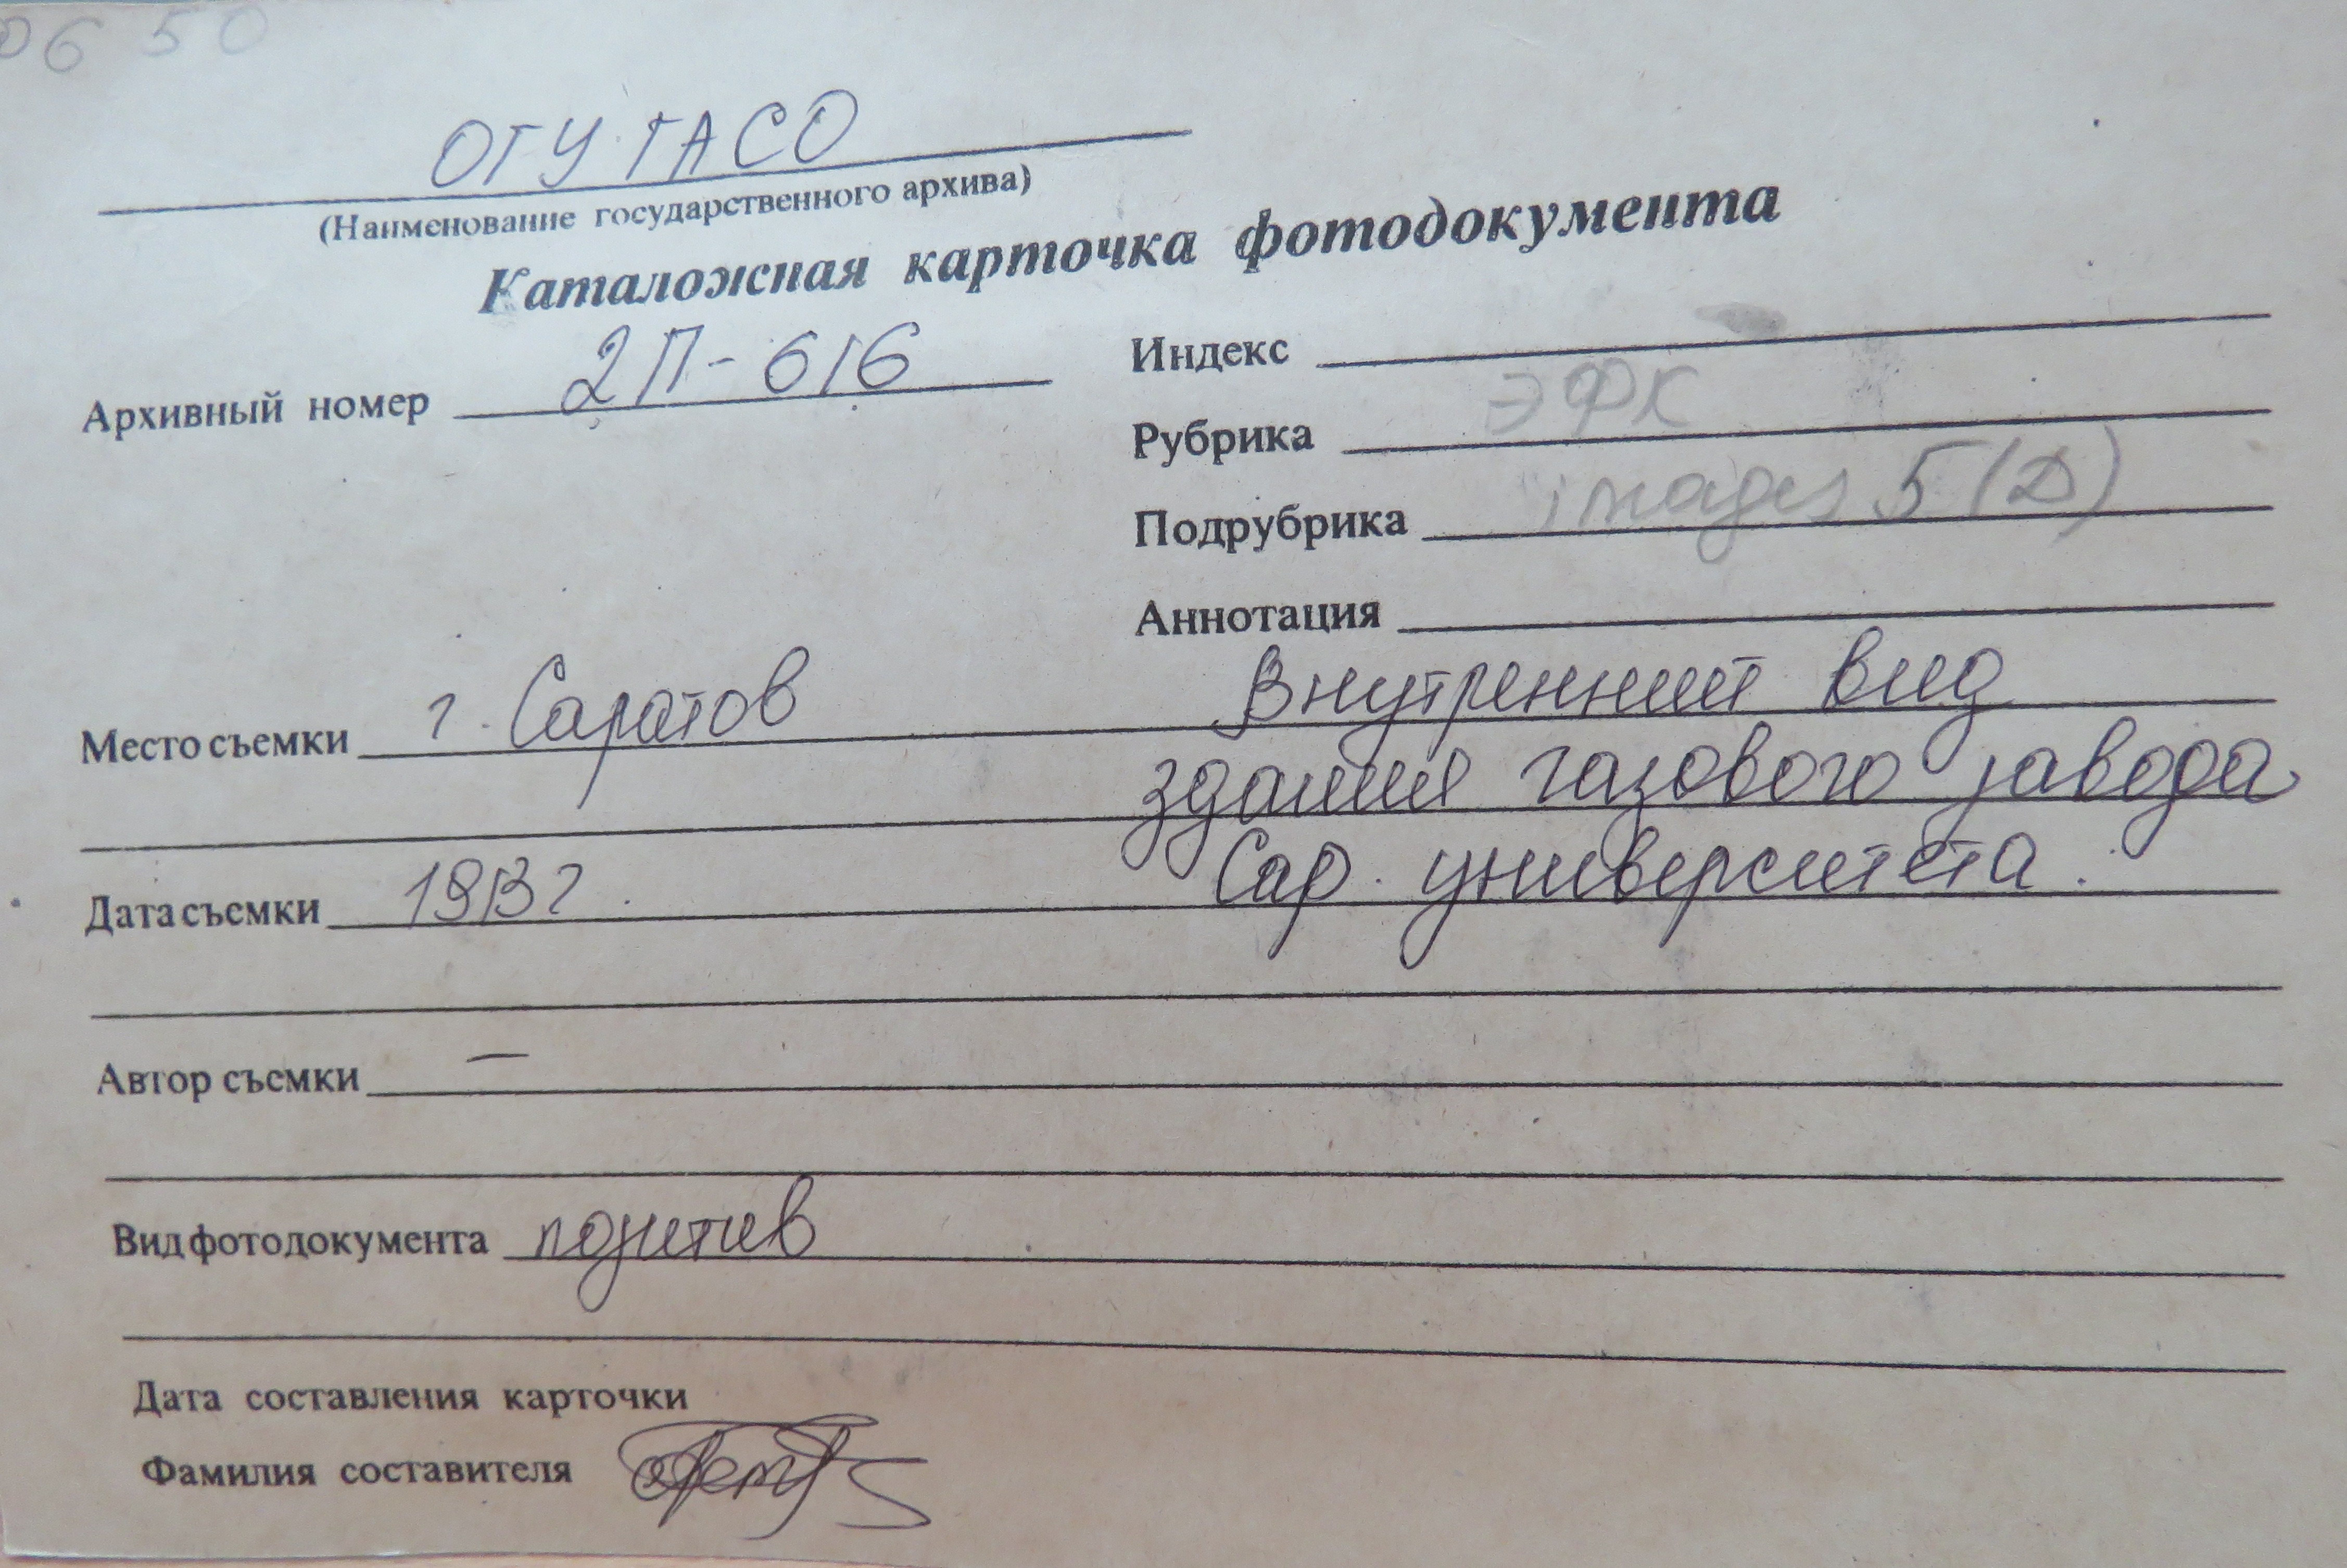 06 50
ОГУ ГАСО
(Наименование государственного архива)
Каталожная карточка фотодокумента
Архивный номер 2П-616
Индекс
Рубрика ЭФК
Подрубрика images 5 (Д)
Аннотация
Место съемки г. Саратов
Внутренний вид
здания газового завода
Сар. университета.
Дата съемки 1913 г.
Автор съемки —
Вид фотодокумента позитив
Дата составления карточки
Фамилия составителя